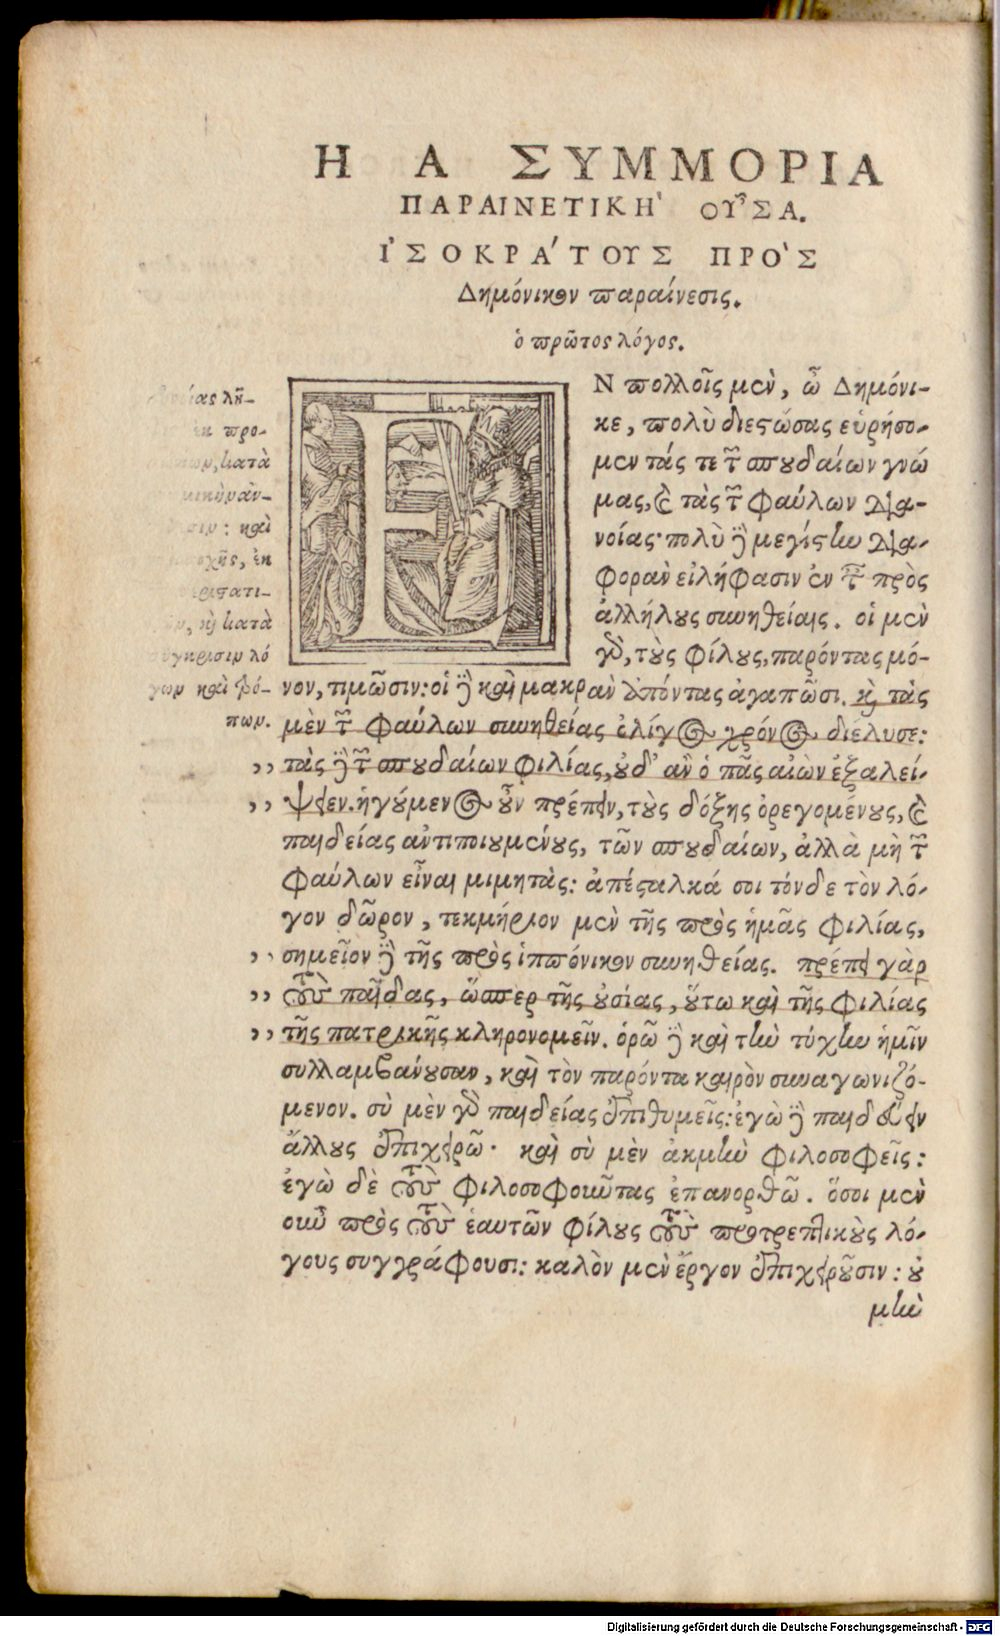 Η Α ΣΥΜΜΟΡΙΑ
ΠΑΡΑΙΝΕΤΙΚΗ' ΟΥ͂ΣΑ.
Ἰ'ΣΟΚΡΑ'ΤΟΥΣ ΠΡΟ'Σ
Δημόνικον παραίνεσις.
ὁ πρῶτος λόγος.
ΕΝ πολλοῖς μὲν, ὦ Δημόνι-
κε, πολὺ διεστώσας εὑρήσο-
μεν τάς τε τῶν σπουδαίων γνώ
μας, καὶ τὰς τῶν φαύλων δια-
νοίας· πολὺ δὲ μεγίστην δια-
φορὰν εἰλήφασιν ἐν ταῖς πρὸς
ἀλλήλους συνηθείαις. οἱ μὲν
γὰρ, τοὺς φίλους, παρόντας μό-
νον, τιμῶσιν: οἱ δὲ καὶ μακρὰν ἀπόντας ἀγαπῶσι. καὶ τὰς
μὲν τῶν φαύλων συνηθείας ὀλίγος χρόνος διέλυσε:
τὰς δὲ τῶν σπουδαίων φιλίας, οὐδ' ἂν ὁ πᾶς αἰὼν ἐξαλεί-
ψειεν. ἡγούμενος οὖν πρέπειν, τοὺς δόξης ὀρεγομένους, καὶ
παιδείας ἀντιποιουμένους, τῶν σπουδαίων, ἀλλὰ μὴ τῶν
φαύλων εἶναι μιμητὰς: ἀπέσταλκά σοι τόνδε τὸν λό-
γον δῶρον, τεκμήριον μὲν τῆς πρὸς ἡμᾶς φιλίας,
σημεῖον δὲ τῆς πρὸς ἱππόνικον συνηθείας. πρέπει γὰρ
τοὺς παῖδας, ὥσπερ τῆς οὐσίας, οὕτω καὶ τῆς φιλίας
τῆς πατρικῆς κληρονομεῖν. ὁρῶ δὲ καὶ τὴν τύχην ἡμῖν
συλλαμβάνουσαν, καὶ τὸν παρόντα καιρὸν συναγωνιζό-
μενον. σὺ μὲν γὰρ παιδείας ἐπιθυμεῖς: ἐγὼ δὲ παιδεύειν
ἄλλους ἐπιχειρῶ· καὶ σὺ μὲν ἀκμὴν φιλοσοφεῖς:
ἐγὼ δὲ τοὺς φιλοσοφοῦντας ἐπανορθῶ. ὅσοι μὲν
οὖν πρὸς τοὺς ἑαυτῶν φίλους τοὺς προτρεπτικοὺς λό-
γους συγγράφουσι: καλὸν μὲν ἔργον ἐπιχειροῦσιν: οὐ
μὴν
λῆ-
ἐκ προ-
κατὰ
καὶ
ἐκ
κατὰ
σύγκρισιν λό
γων καὶ τρό-
πων.
Digitalisierung gefördert durch die Deutsche Forschungsgemeinschaft - DFG